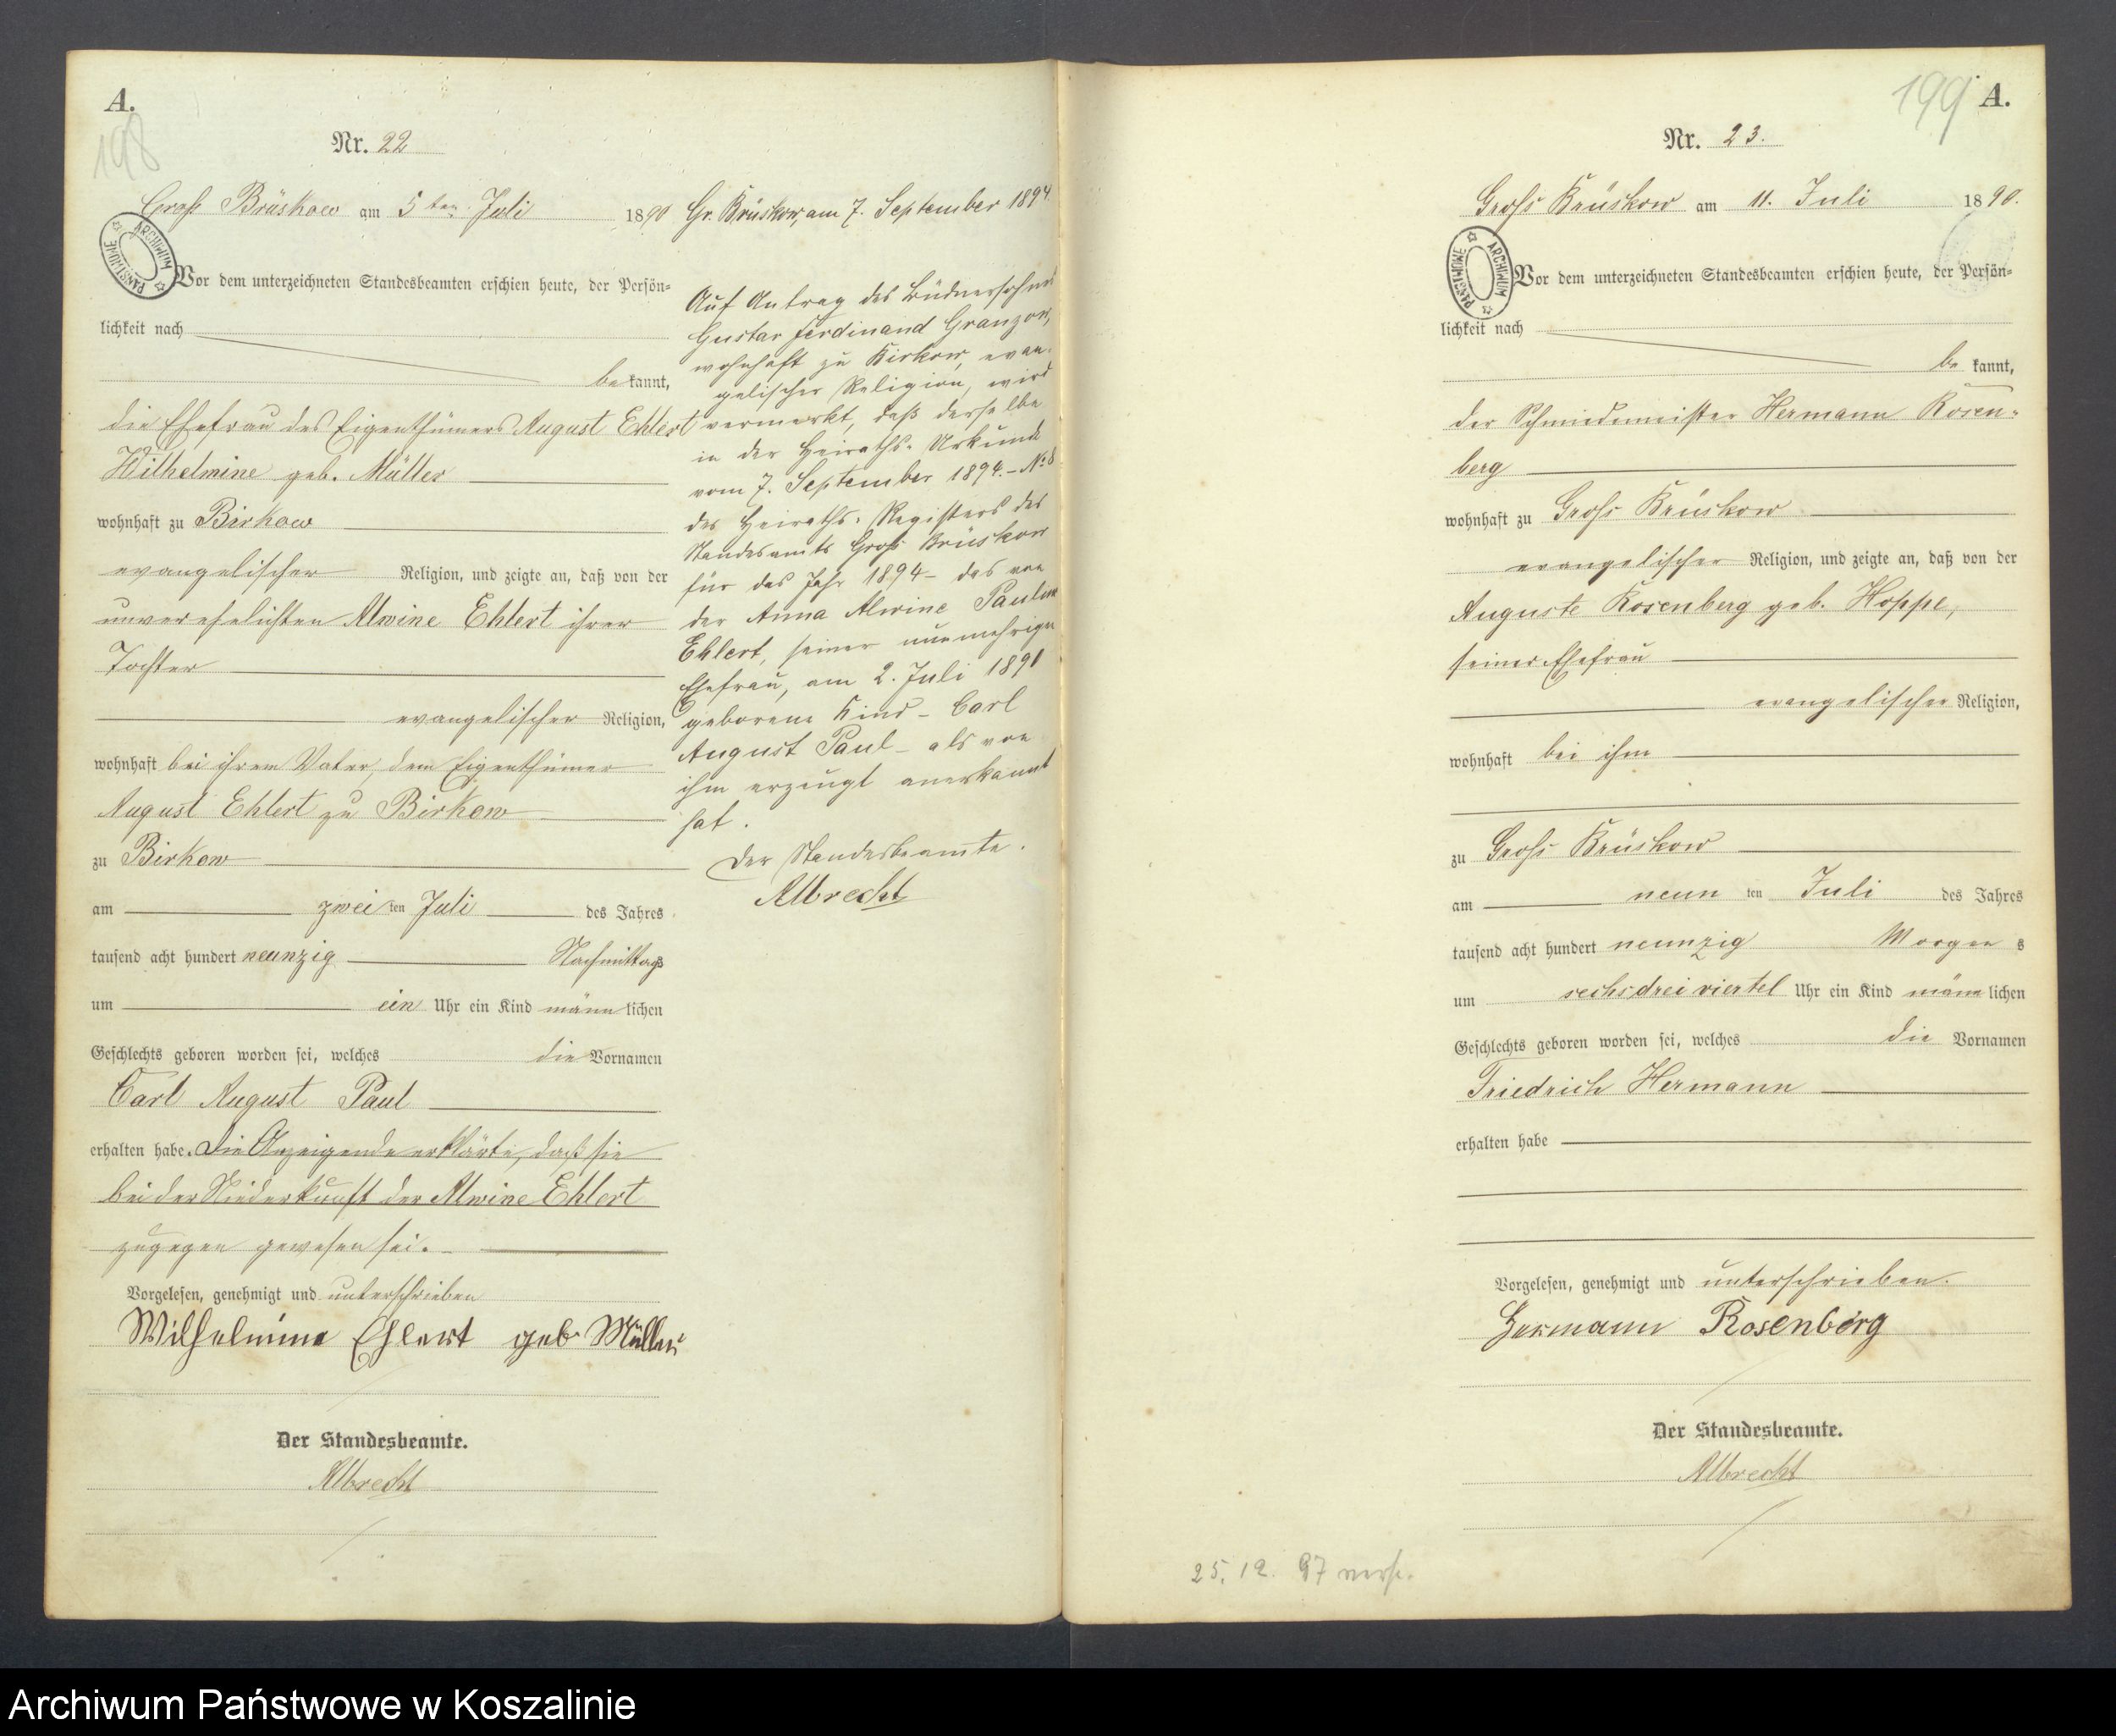 A.
198
Nr. 22
Groß Brüskow am 5ten Juli 1890
ARCHIWUM PAŃSTWOWE
Vor dem unterzeichneten Standesbeamten erschien heute, der Persön-
lichkeit nach
bekannt,
die Ehefrau des Eigenthümers August Ehlert
Wilhelmine geb. Müller
wohnhaft zu Birkow
evangelischer Religion, und zeigte an, daß von der
unverehelichten Alwine Ehlert ihrer
Tochter
evangelischer Religion,
wohnhaft bei ihrem Vater, dem Eigenthümer
August Ehlert zu Birkow
zu Birkow
am zweiten Juli des Jahres
tausend acht hundert neunzig Nachmittags
um ein Uhr ein Kind männlichen
Geschlechts geboren worden sei, welches die Vornamen
Carl August Paul
erhalten habe. Die Anzeigende erklärte, daß sie
bei der Niederkunft der Alwine Ehlert
zugegen gewesen sei.
Vorgelesen, genehmigt und unterschrieben
Wilhelmine Ehlert geb Müller
Der Standesbeamte.
Albrecht
Gr. Brüskow, am 7. September 1894.
Auf Antrag des Büdnersohnes
Gustav Ferdinand Granzow,
wohnhaft zu Birkow, evan-
gelischer Religion, wird
vermerkt, daß derselbe
in der Heiraths-Urkunde
vom 7. September 1894 – No 8
des Heiraths-Registers des
Standesamts Groß Brüskow
für das Jahr 1894 – das von
der Anna Alwine Pauline
Ehlert, seiner nunmehrigen
Ehefrau, am 2. Juli 1890
geborene Kind – Carl
August Paul – als von
ihm erzeugt anerkannt
hat.
Der Standesbeamte.
Albrecht
199
A.
Nr. 23.
Gross Brüskow am 11. Juli 1890.
ARCHIWUM PAŃSTWOWE
Vor dem unterzeichneten Standesbeamten erschien heute, der Persön-
lichkeit nach
bekannt,
der Schmiedemeister Hermann Rosen-
berg
wohnhaft zu Gross Brüskow
evangelischer Religion, und zeigte an, daß von der
Auguste Rosenberg geb. Hoppe,
seiner Ehefrau
evangelischer Religion,
wohnhaft bei ihm
zu Gross Brüskow
am neunten Juli des Jahres
tausend acht hundert neunzig Morgens
um sechsdreiviertel Uhr ein Kind männlichen
Geschlechts geboren worden sei, welches die Vornamen
Friedrich Hermann
erhalten habe
Vorgelesen, genehmigt und unterschrieben.
Hermann Rosenberg
Der Standesbeamte.
Albrecht
25. 12. 97
Archiwum Państwowe w Koszalinie